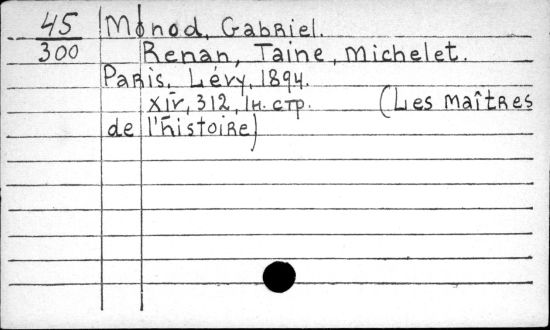 45 Monod, Gabriel.
300 Renan, Taine, Michelet.
Paris, Lévy, 1894.
XIV, 312, 1н. стр. (Les maîtres
de l'histoire)